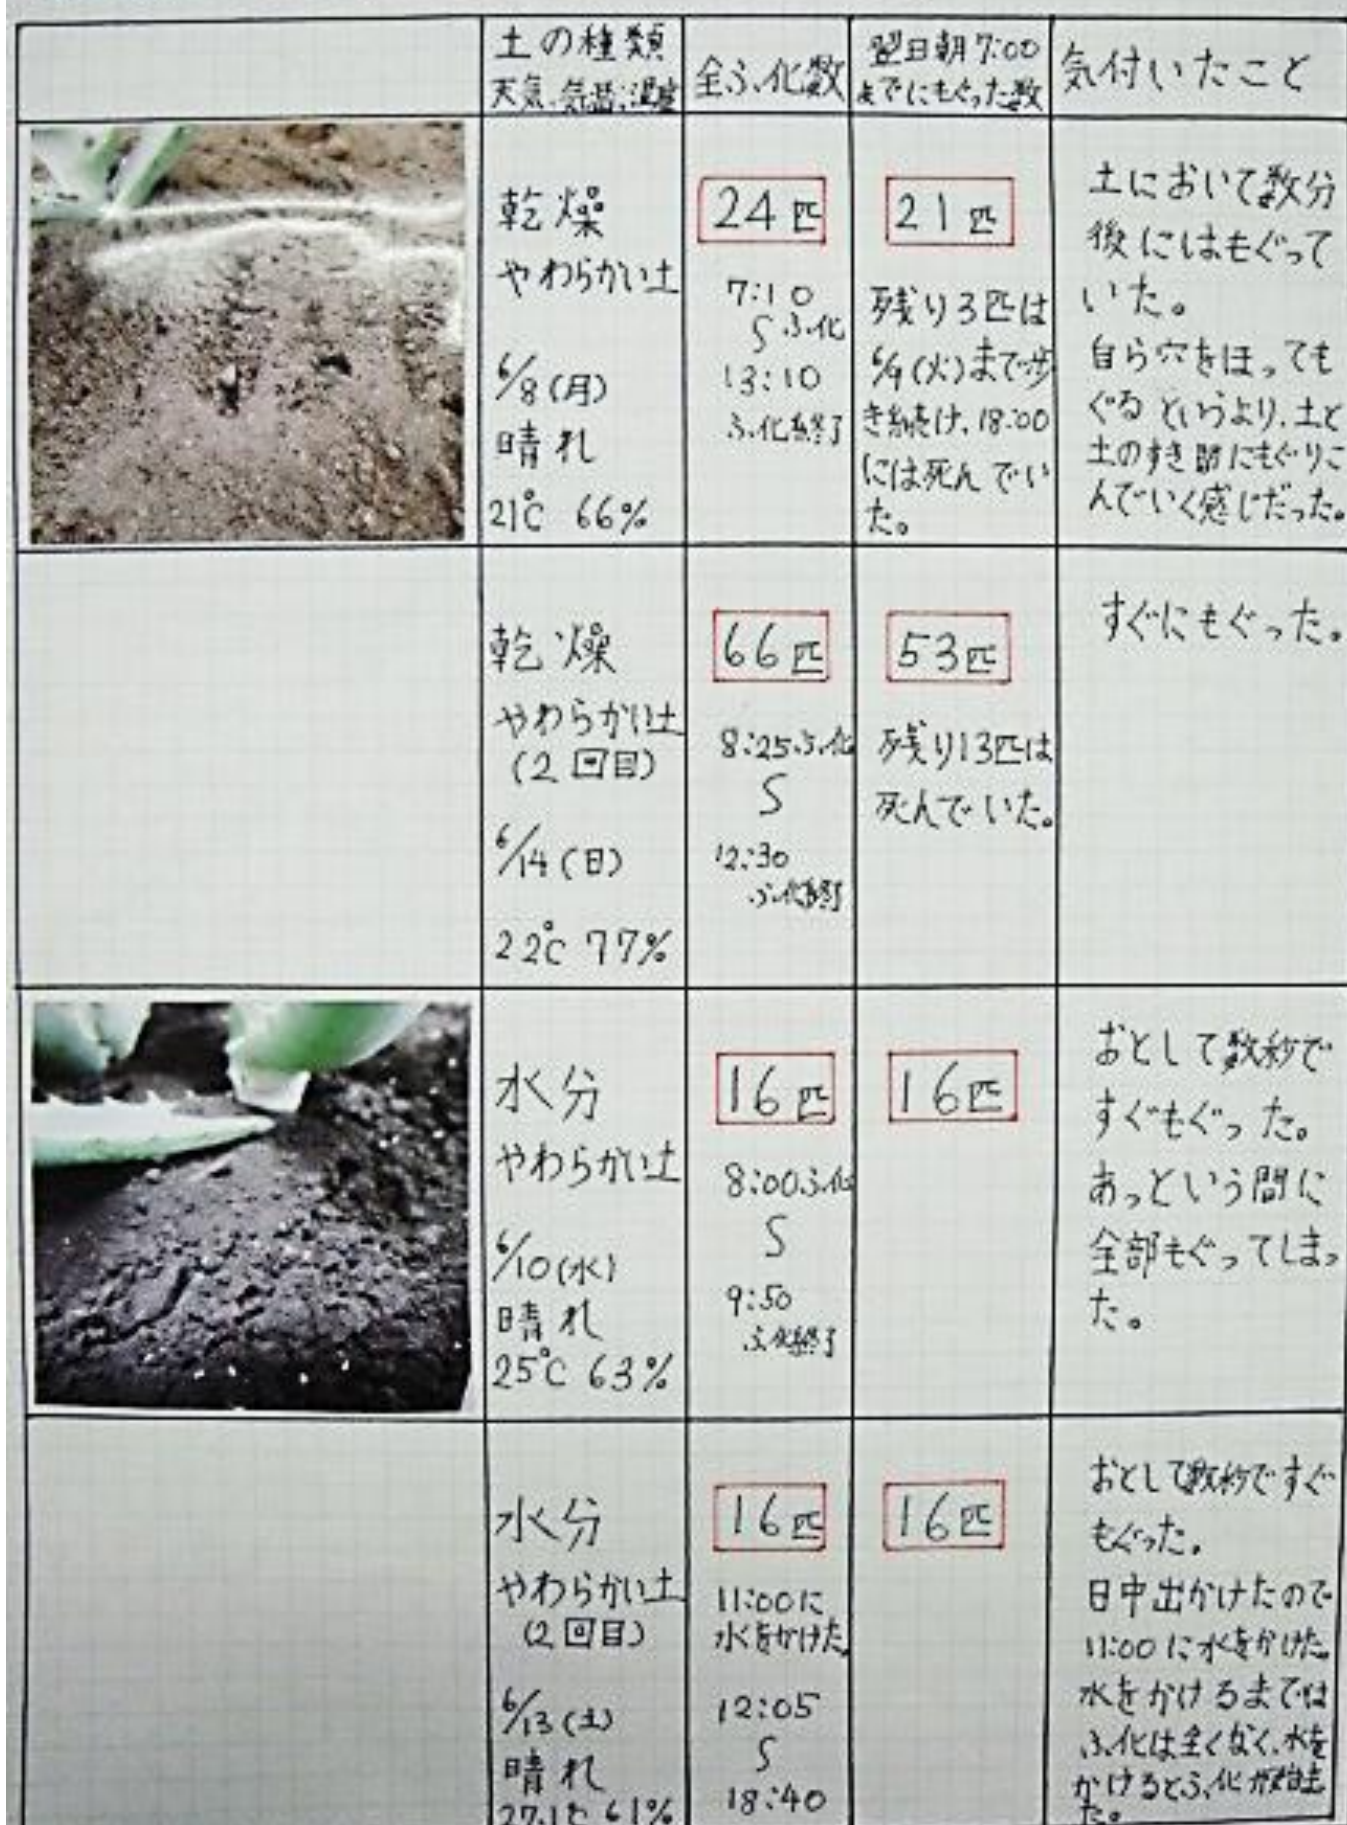 土の種類
天気、気温、湿度
全ふ化数
翌日朝7:00
までにもぐった数
気付いたこと
乾燥
やわらかい土
6/8(月)
晴れ
21℃ 66%
24匹
7:10
〜ふ化
13:10
ふ化終了
21匹
残り3匹は
6/9(火)まで歩
き続け、18:00
には死んでい
た。
土において数分
後にはもぐって
いた。
自ら穴をほっても
ぐるというより、土と
土のすき間にもぐりこ
んでいく感じだった。
乾燥
やわらかい土
(2回目)
6/14(日)
22℃ 77%
66匹
8:25ふ化
〜
12:30
ふ化終了
53匹
残り13匹は
死んでいた。
すぐにもぐった。
水分
やわらかい土
6/10(水)
晴れ
25℃ 63%
16匹
8:00ふ化
〜
9:50
ふ化終了
16匹
おとして数秒で
すぐもぐった。
あっという間に
全部もぐってしまっ
た。
水分
やわらかい土
(2回目)
6/13(土)
晴れ
27.1℃ 61%
16匹
11:00に
水をかけた。
12:05
〜
18:40
16匹
おとして数秒ですぐ
もぐった。
日中出かけたので
11:00に水をかけた。
水をかけるまでは
ふ化は全くなく、水を
かけるとふ化が始まっ
た。